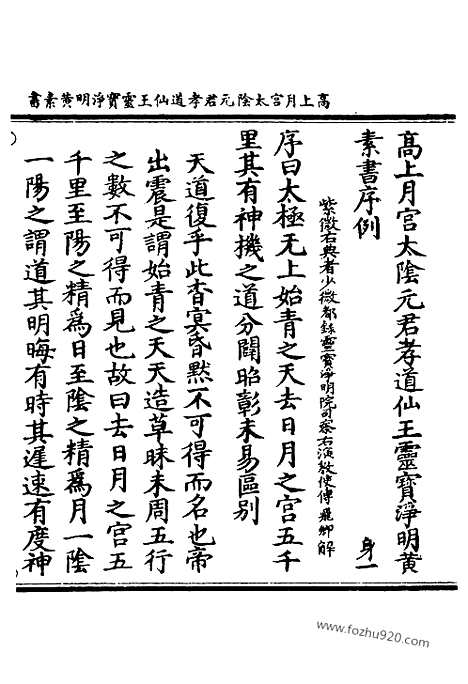 高上月宮太陰元君孝道仙王靈寶淨明黃素書
高上月宮太陰元君孝道仙王靈寶淨明黃
素書序例
身一
紫微右典者少微都錄靈寶淨明院司察右演教使傅飛卿解
序曰太極无上始青之天去日月之宮五千
里其有神機之道分闢昭彰未易區別
天道復乎此杳冥昏默不可得而名也帝
出震是謂始青之天天造草昧未周五行
之數不可得而見也故曰去日月之宮五
千里至陽之精為日至陰之精為月一陰
一陽之謂道其明晦有時其遲速有度神
www.fozhu920.com